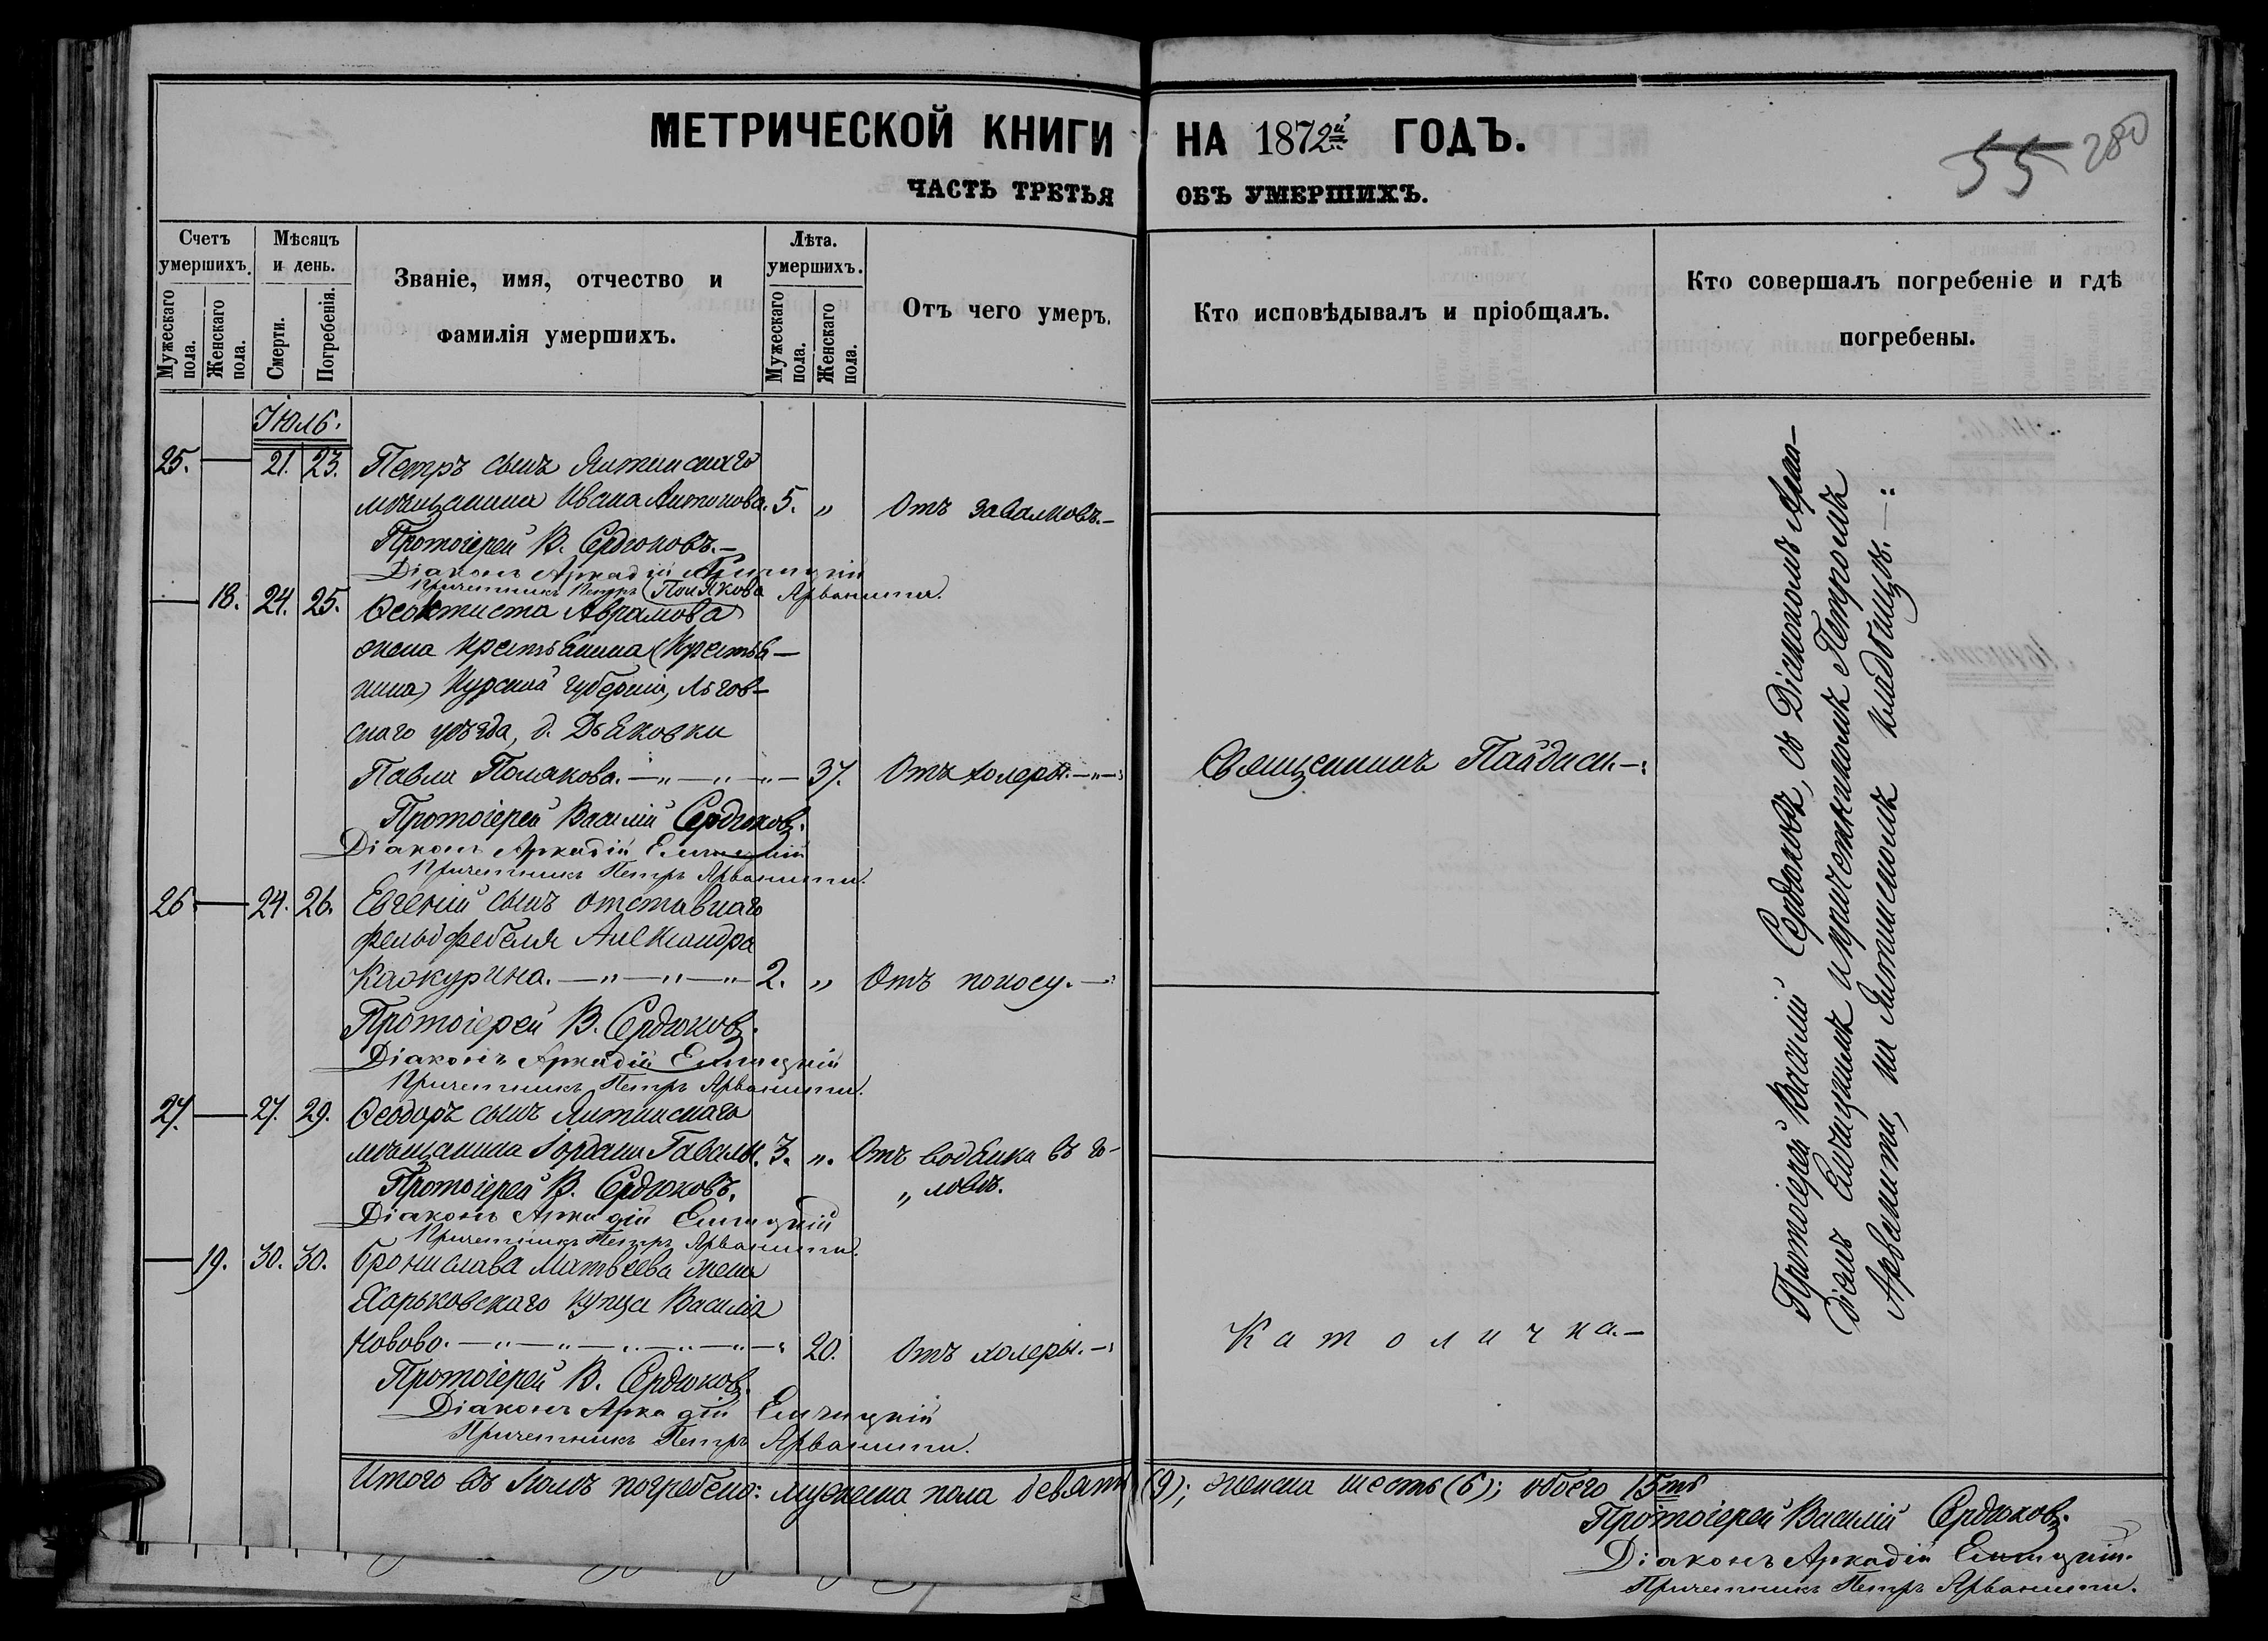 МЕТРИЧЕСКОЙ КНИГИ НА 1872й ГОДЪ.
55 280
ЧАСТЬ ТРЕТЬЯ ОБЪ УМЕРШИХЪ.
Счетъ умершихъ.
Мужескаго пола.
Женскаго пола.
Мѣсяцъ и день.
Смерти.
Погребенія.
Званіе, имя, отчество и
фамилія умершихъ.
Лѣта. умершихъ.
Мужескаго пола.
Женскаго пола.
Отъ чего умеръ.
Кто исповѣдывалъ и пріобщалъ.
Кто совершалъ погребеніе и гдѣ
погребены.
Іюль.
25. — 21. 23. Петръ сынъ Ялтинскаго
мѣщанина Ивана Антонова. 5. „ Отъ завалковъ.—
Протоіерей В. Сердюковъ.—
Діаконъ Аркадій
Причетникъ Петръ Арванити.
(Полякова
— 18. 24. 25. Ѳеоктиста Аврамова)
жена крестьянина (Крестья—
нина) Курской губерніи, Льгов—
скаго уѣзда, д. Дьяковки
Павла Полякова. —„—„—„— 37. Отъ холеры.—„— Священникъ Пайдаси—:
Протоіерей Василій Сердюковъ.
Діаконъ Аркадій
Причетникъ Петръ Арванити.
26 — 24. 26. Евгеній сынъ отставнаго
фельдфебеля Александра
Каокурина. —„—„—„ 2. „ Отъ поносу.—
Протоіерей В. Сердюковъ.
Діаконъ Аркадій
Причетникъ Петръ Арванити.
27. — 27. 29. Ѳеодоръ сынъ Ялтинскаго
мѣщанина Іордана Гавалы. 3. „. Отъ водянки въ го—
„ ловѣ.
Протоіерей В. Сердюковъ.
Діаконъ Аркадій
Причетникъ Петръ Арванити.
— 19. 30. 30. Бронислава Матвѣева жена
Харьковскаго купца Василія
Новово. —„—„—„—„—„—: 20. Отъ холеры.—: Католичка.—
Протоіерей В. Сердюковъ.
Діаконъ Аркадій
Причетникъ Петръ Арванити.
Протоіерей Василій Сердюковъ, съ Діакономъ Арка—
діемъ и причетникомъ Петромъ
Арванити, на Ялтинскомъ кладбищѣ.—:
Итого въ Іюлѣ погребено: мужеска пола девять (9); женска шесть (6); обоего 15ть
Протоіерей Василій Сердюковъ.
Діаконъ Аркадій
Причетникъ Петръ Арванити.